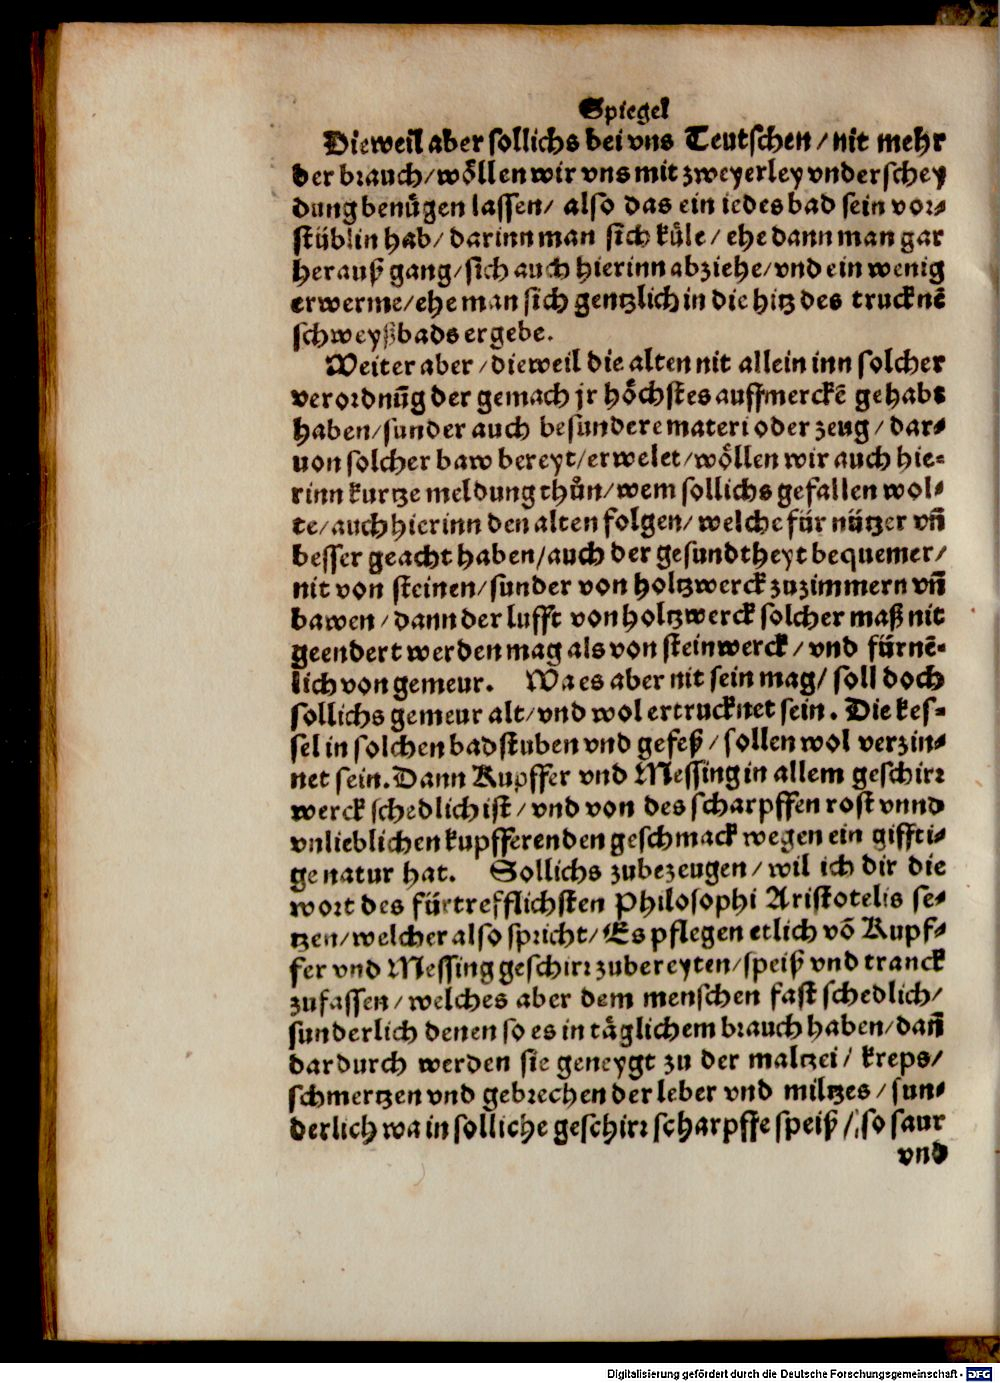 Spiegel
Dieweil aber sollichs bei vns Teutschen / nit mehr
der brauch / wöllen wir vns mit zweyerley vnderschey
dung benügen lassen / also das ein iedes bad sein vor⸗
stüblin hab / darinn man sich küle / ehe dann man gar
herauß gang / sich auch hierinn abziehe / vnd ein wenig
erwerme / ehe man sich gentzlich in die hitz des trucknē
schweyßbads ergebe.
Weiter aber / dieweil die alten nit allein inn solcher
verordnūg der gemach jr höchstes auffmerckē gehabt
haben / sunder auch besundere materi oder zeug / dar⸗
uon solcher baw bereyt / erwelet / wöllen wir auch hie⸗
rinn kurtze meldung thůn / wem sollichs gefallen wol⸗
te / auch hierinn den alten folgen / welche für nützer vñ
besser geacht haben / auch der gesundtheyt bequemer /
nit von steinen / sunder von holtzwerck zuzimmern vñ
bawen / dann der lufft von holtzwerck solcher maß nit
geendert werden mag als von steinwerck / vnd fürnē⸗
lich von gemeur. Wa es aber nit sein mag / soll doch
sollichs gemeur alt / vnd wol ertrucknet sein. Die kes⸗
sel in solchen badstuben vnd gefeß / sollen wol verzin⸗
net sein. Dann Kupffer vnd Messing in allem geschirr
werck schedlich ist / vnd von des scharpffen rost vnnd
vnlieblichen kupfferenden geschmack wegen ein giffti⸗
ge natur hat. Sollichs zubezeugen / wil ich dir die
wort des fürtrefflichsten Philosophi Aristotelis se⸗
tzen / welcher also spricht / Es pflegen etlich vō Kupf⸗
fer vnd Messing geschirr zubereyten / speiß vnd tranck
zufassen / welches aber dem menschen fast schedlich /
sunderlich denen so es in täglichem brauch haben / dañ
dardurch werden sie geneygt zu der maltzei / kreps /
schmertzen vnd gebrechen der leber vnd miltzes / sun⸗
derlich wa in solliche geschirr scharpffe speiß / so saur
vnd
Digitalisierung gefördert durch die Deutsche Forschungsgemeinschaft - DFG